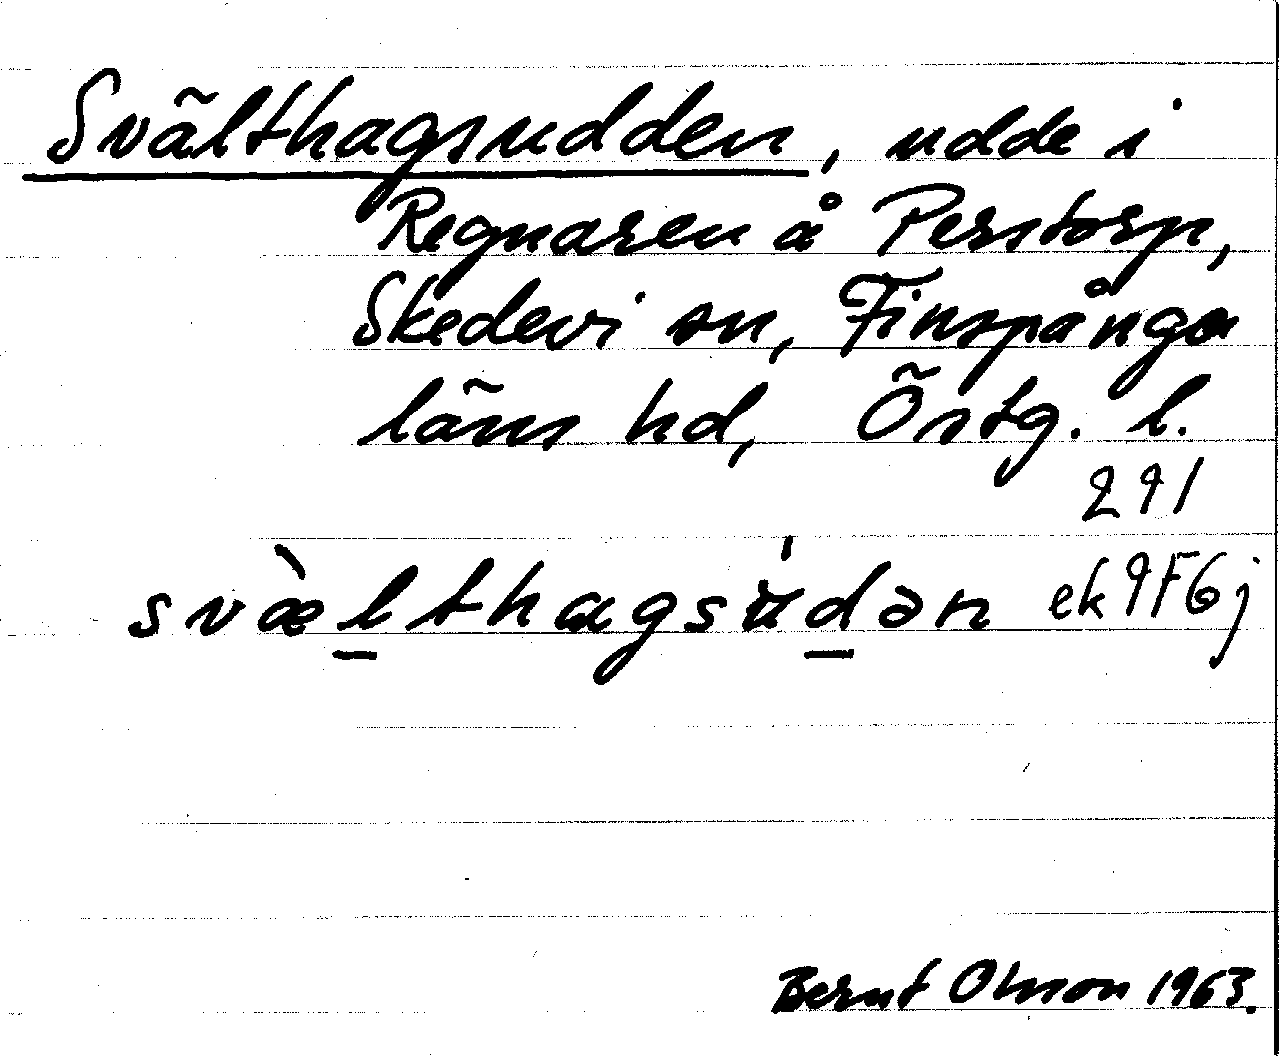 Svälthagsudden, udde i
Regnaren å Perstorp,
Skedevi sn, Finspånga
läns hd, Östg. l.
291
svæ̀lthagsúdən ek 9F6j
Bernt Olsson 1963.